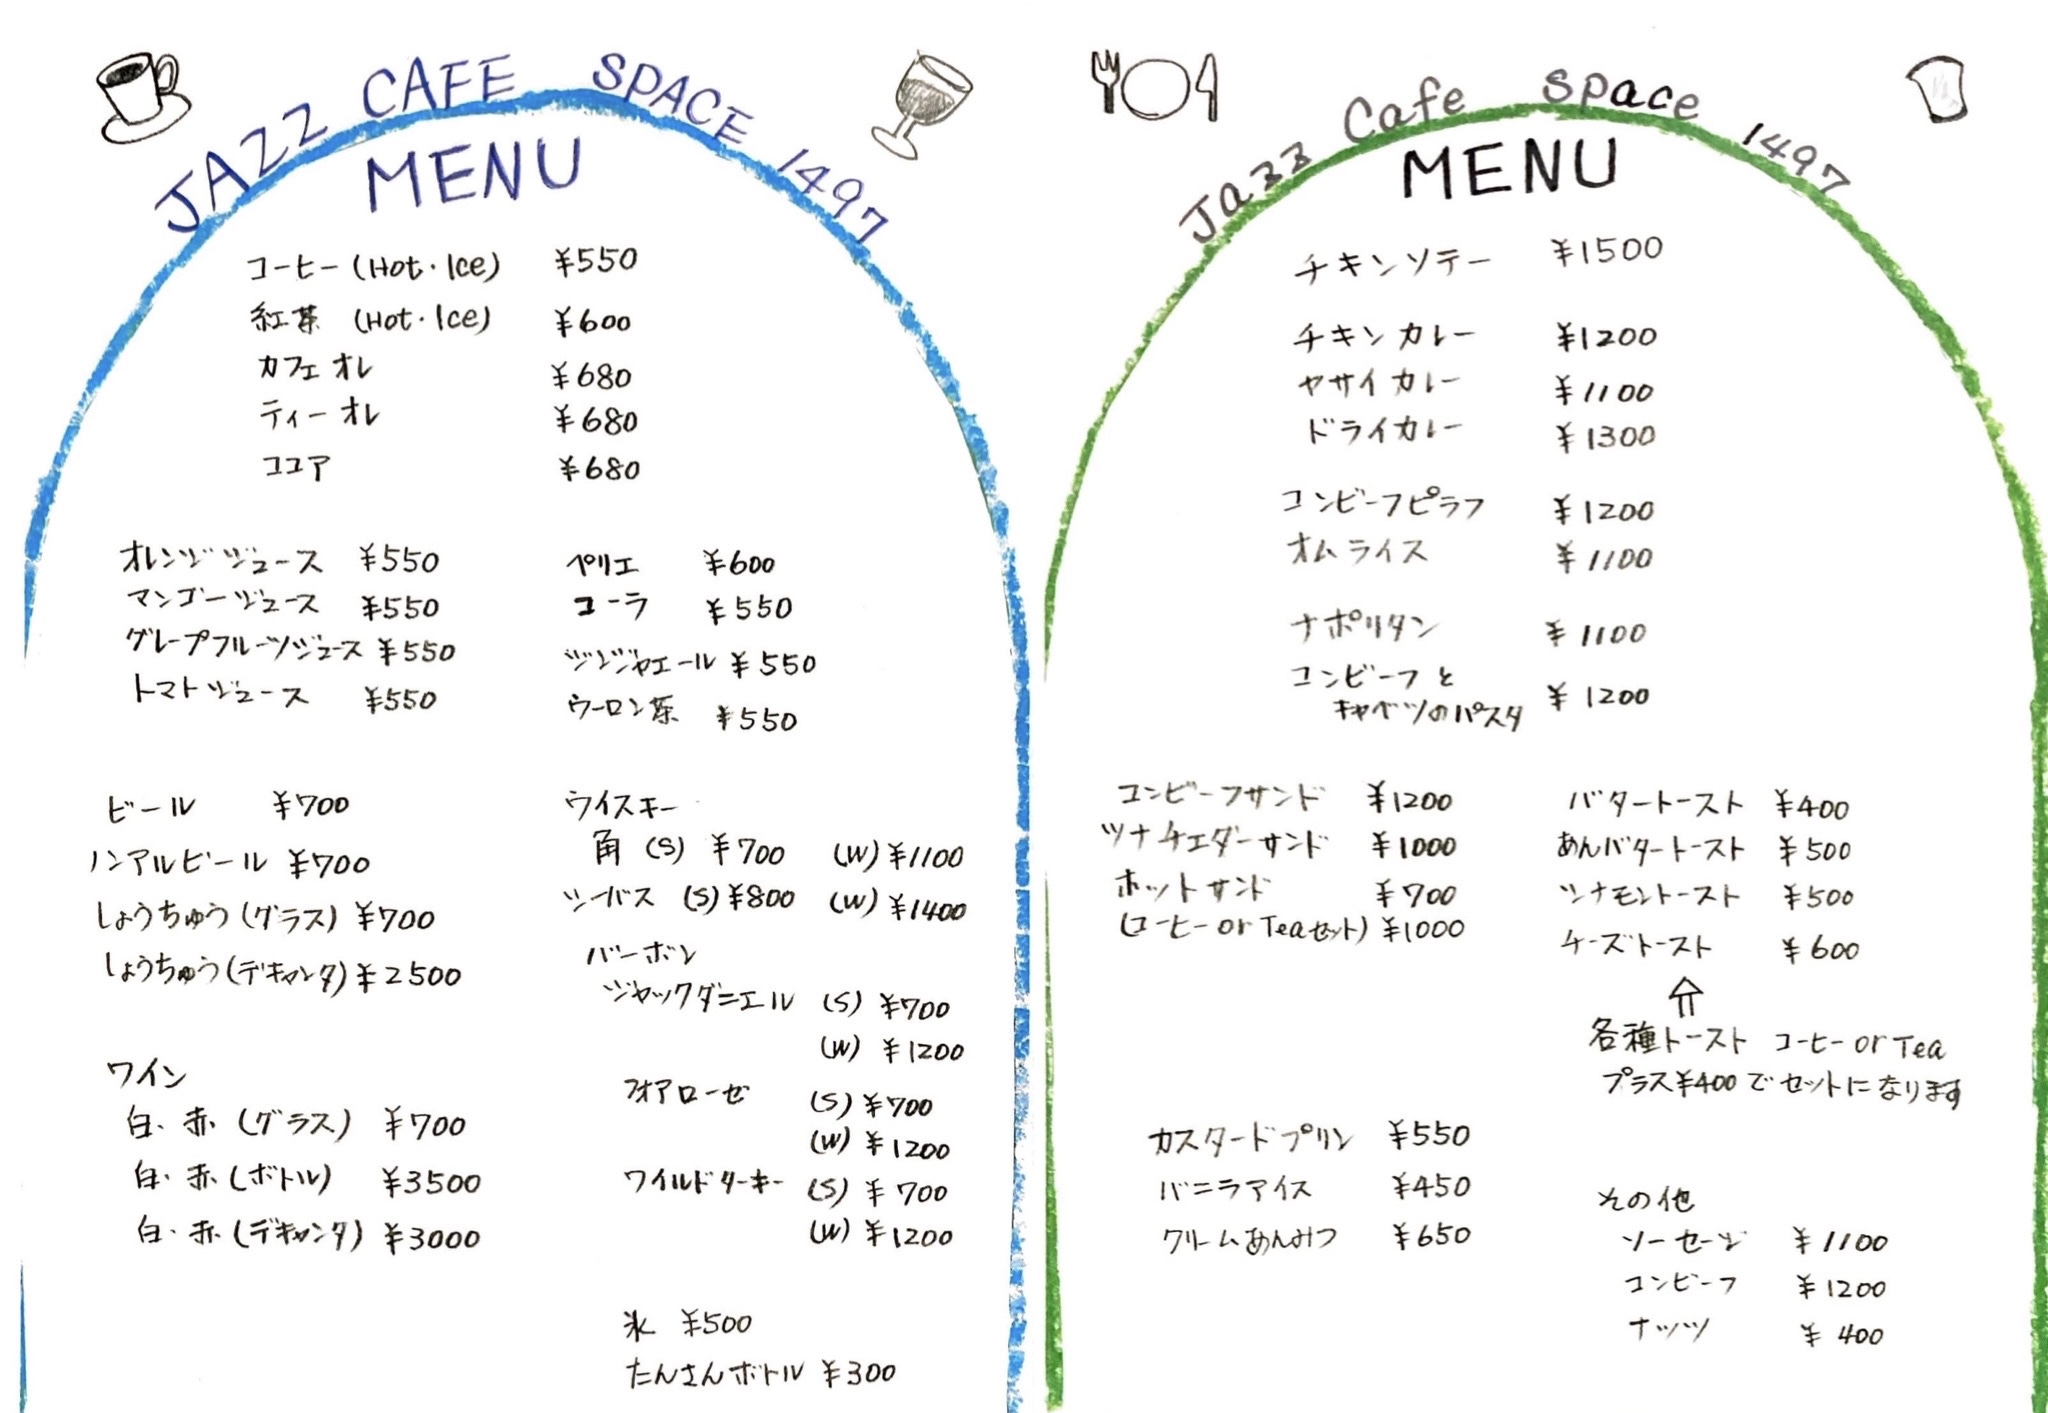 JAZZ CAFE SPACE 1497
MENU
コーヒー (Hot・Ice) ¥550
紅茶 (Hot・Ice) ¥600
カフェオレ ¥680
ティーオレ ¥680
ココア ¥680
オレンジジュース ¥550
マンゴージュース ¥550
グレープフルーツジュース ¥550
トマトジュース ¥550
ペリエ ¥600
コーラ ¥550
ジンジャエール ¥550
ウーロン茶 ¥550
ビール ¥700
ノンアルビール ¥700
しょうちゅう(グラス) ¥700
しょうちゅう(デキャンタ) ¥2500
ワイン
白・赤 (グラス) ¥700
白・赤 (ボトル) ¥3500
白・赤 (デキャンタ) ¥3000
ウイスキー
角 (S) ¥700 (W) ¥1100
シーバス (S) ¥800 (W) ¥1400
バーボン
ジャックダニエル (S) ¥700
(W) ¥1200
フォアローゼ (S) ¥700
(W) ¥1200
ワイルドターキー (S) ¥700
(W) ¥1200
氷 ¥500
たんさんボトル ¥300
Jazz Cafe Space 1497
MENU
チキンソテー ¥1500
チキンカレー ¥1200
ヤサイカレー ¥1100
ドライカレー ¥1300
コンビーフピラフ ¥1200
オムライス ¥1100
ナポリタン ¥1100
コンビーフと
キャベツのパスタ ¥1200
コンビーフサンド ¥1200
ツナチェダーサンド ¥1000
ホットサンド ¥700
(コーヒー or Teaセット) ¥1000
バタートースト ¥400
あんバタートースト ¥500
ツナモントースト ¥500
チーズトースト ¥600
各種トースト コーヒー or Tea
プラス¥400でセットになります
カスタードプリン ¥550
バニラアイス ¥450
クリームあんみつ ¥650
その他
ソーセージ ¥1100
コンビーフ ¥1200
ナッツ ¥400